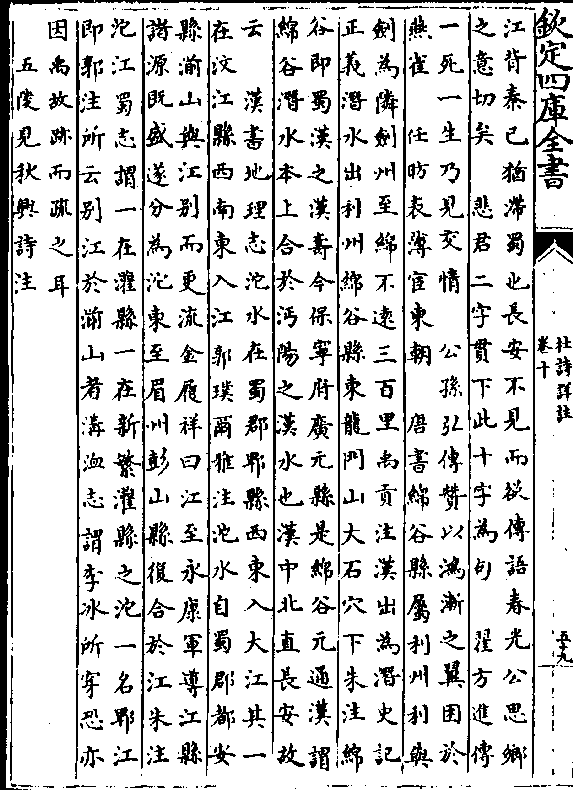 欽定四庫全書
杜詩詳註
卷十
五十九
江背秦已猶滯蜀也長安不見而欲傳語春光公思鄉
之意切矣　悲君二字貫下此十字為句　翟方進傳
一死一生乃見交情　公孫弘傳贊以鴻漸之翼困於
燕雀　任昉表薄宦東朝　唐書綿谷縣屬利州利與
劍為隣劍州至綿不遠三百里禹貢注漢出為潛史記
正義潛水出利州綿谷縣東龍門山大石穴下朱注綿
谷即蜀漢之漢壽今保寧府廣元縣是綿谷元通漢謂
綿谷潛水本上合於沔陽之漢水也漢中北直長安故
云　漢書地理志沱水在蜀郡郫縣西東入大江其一
在汶江縣西南東入江郭璞爾雅注沱水自蜀郡都安
縣湔山與江別而更流金履祥曰江至永康軍導江縣
諸源既盛遂分為沱東至眉州彭山縣復合於江朱注
沱江蜀志謂一在灌縣一在新繁灌縣之沱一名郫江
即郭注所云別江於湔山者溝洫志謂李冰所穿恐亦
因禹故跡而疏之耳
五陵見秋興詩注